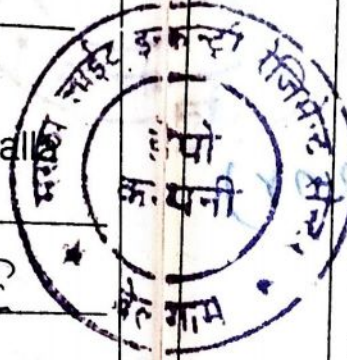 मराठा लाईट इन्फन्ट्री रेजिमेंट सेन्टर
डेपो
कम्पनी
बेलगाम